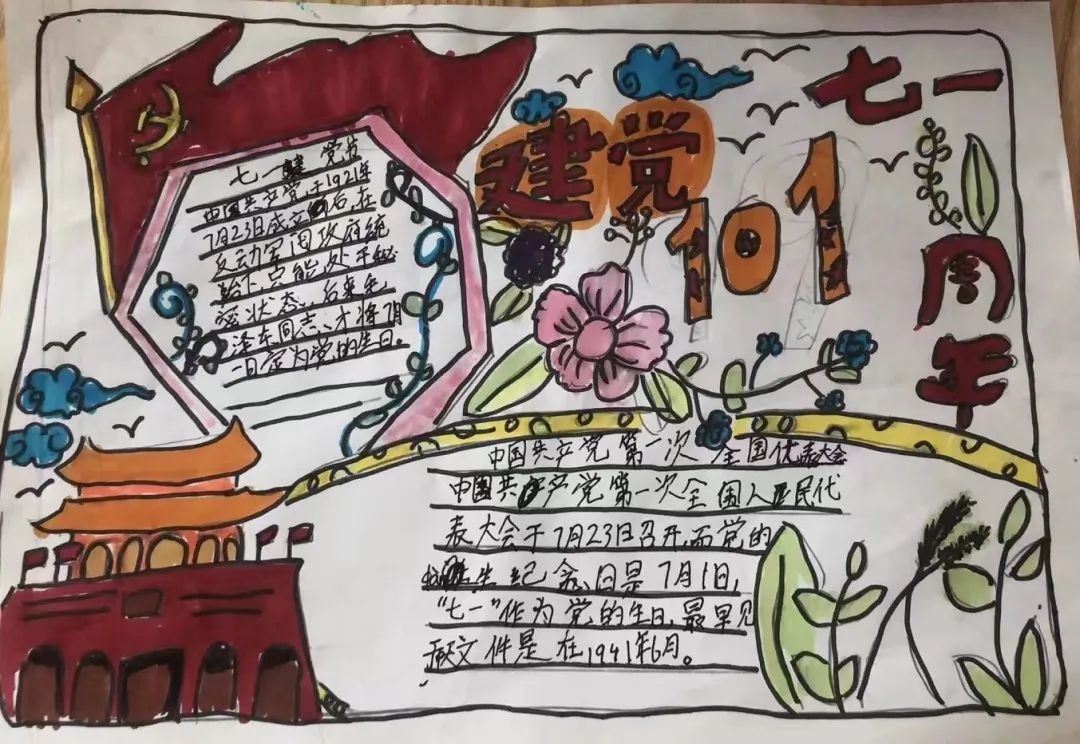 七一
建党
101
周年
七一建党节
中国共产党于1921年
7月23日成立后,在
反动军阀政府统
治下,只能处于秘
密状态,后来毛
泽东同志、才将7月
一日定为党的生日。
中国共产党第一次全国代表大会
中国共产党第一次全国人民代
表大会于7月23日召开,而党的
生纪念日是7月1日,
"七一"作为党的生日,最早见
于文件是在1941年6月。